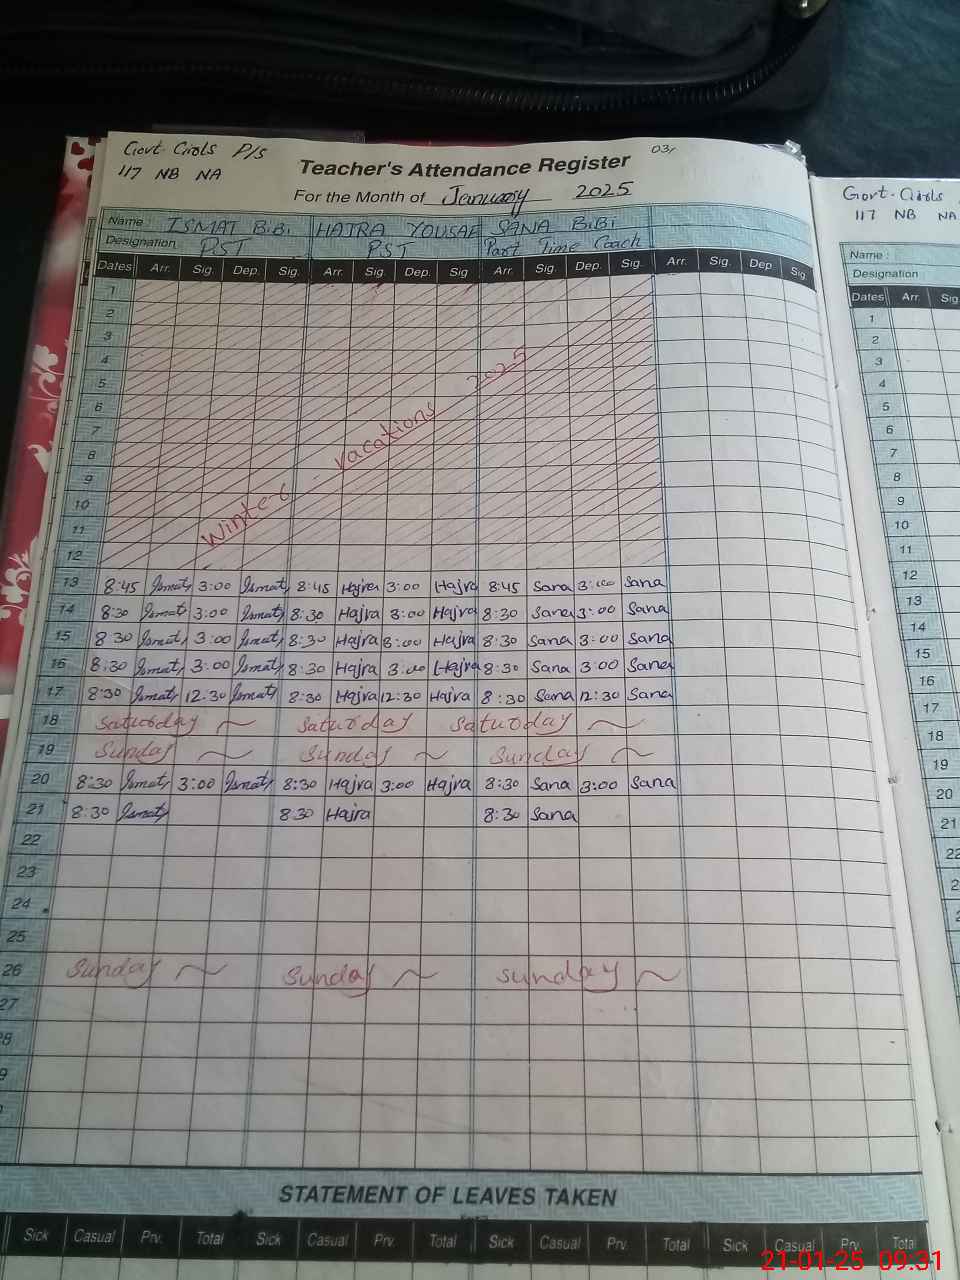 Govt. Girls P/S
117 NB NA
03/
Teacher's Attendance Register
For the Month of January 2025
Name : ISMAT BiBi HAJRA YOUSAF SANA BiBi
Designation PST PST Part Time Coach
Dates Arr. Sig. Dep. Sig. Arr. Sig. Dep. Sig Arr. Sig. Dep. Sig. Arr. Sig. Dep Sig.
1
2
3
4
5
6
7
8
9
10
11
12
Winter vacations 2025
13 8:45 Ismat 3:00 Ismat 8:45 Hajra 3:00 Hajra 8:45 Sana 3:00 Sana
14 8:30 Ismat 3:00 Ismat 8:30 Hajra 3:00 Hajra 8:30 Sana 3:00 Sana
15 8 30 Ismat 3:00 Ismat 8:30 Hajra 3:00 Hajra 8:30 Sana 3:00 Sana
16 8:30 Ismat 3:00 Ismat 8:30 Hajra 3:00 Hajra 8:30 Sana 3:00 Sana
17 8:30 Ismat 12:30 Ismat 8:30 Hajra 12:30 Hajra 8:30 Sana 12:30 Sana
18 Saturday Saturday Saturday
19 Sunday Sunday Sunday
20 8:30 Ismat 3:00 Ismat 8:30 Hajra 3:00 Hajra 8:30 Sana 3:00 Sana
21 8:30 Ismat 8:30 Hajra 8:30 Sana
22
23
24
25
26 Sunday Sunday Sunday
27
28
9
STATEMENT OF LEAVES TAKEN
Sick Casual Prv. Total Sick Casual Prv. Total Sick Casual Prv. Total Sick Casual Prv. Total
Govt. Girls
117 NB NA
Name :
Designation
Dates Arr. Sig.
1
2
3
4
5
6
7
8
9
10
11
12
13
14
15
16
17
18
19
20
21
22
2
2
21-01-25 09:31